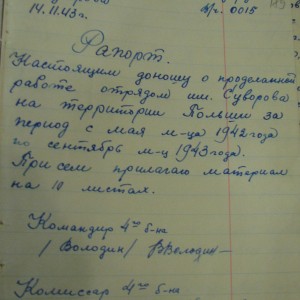 14.11.43г. № 0015
Рапорт.
Настоящим доношу о проделанной
работе отрядом им. Суворова
на территории Польши за
период с мая м-ца 1942 года
по сентябрь м-ц 1943 года.
При сем прилагаю материал
на 10 листах.
Командир 4го б-на
/Володин/ ВВолодин
Комиссар 4го б-на